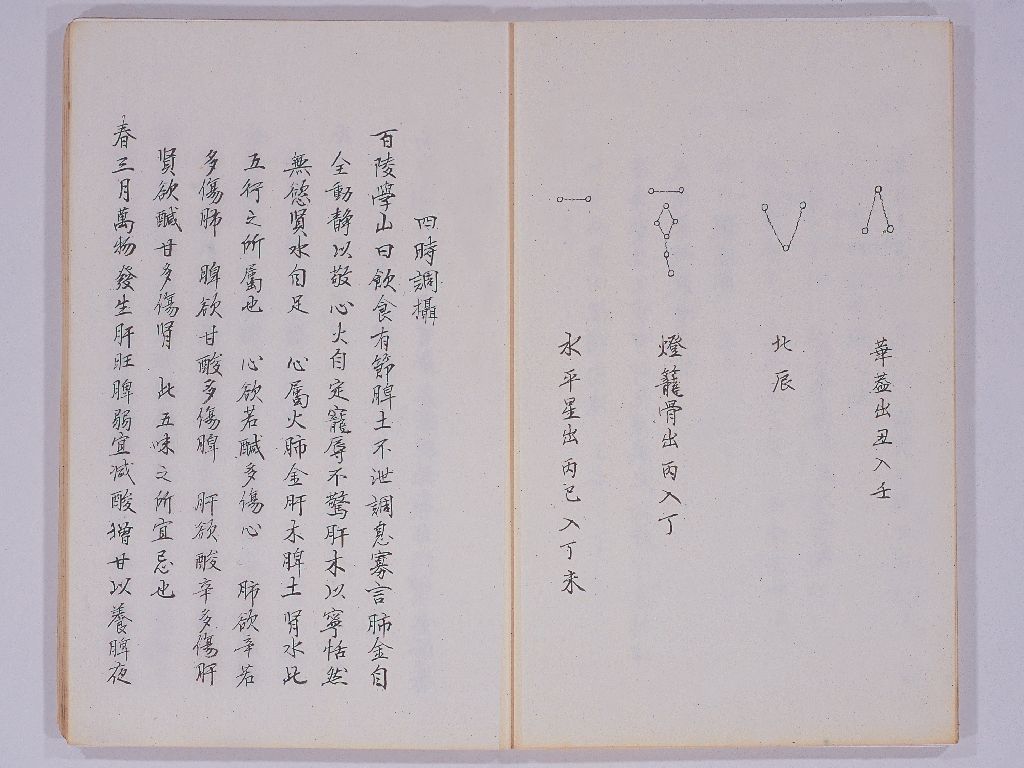 華葢出丑入壬
北辰
燈籠骨出丙入丁
水平星出丙巳入丁未
四時調攝
百陵學山曰飲食有節脾土不泄調息寡言肺金自
全動靜以敬心火自定寵辱不驚肝木以寧恬然
無慾賢水自足 心属火肺金肝木脾土肾水此
五行之所屬也 心欲若醎多傷心 肺欲辛若
多傷肺 脾欲甘酸多傷脾 肝欲酸辛多傷肝
賢欲醎甘多傷肾 此五味之所宜忌也
春三月萬物發生肝旺脾弱宜减酸增甘以養脾夜